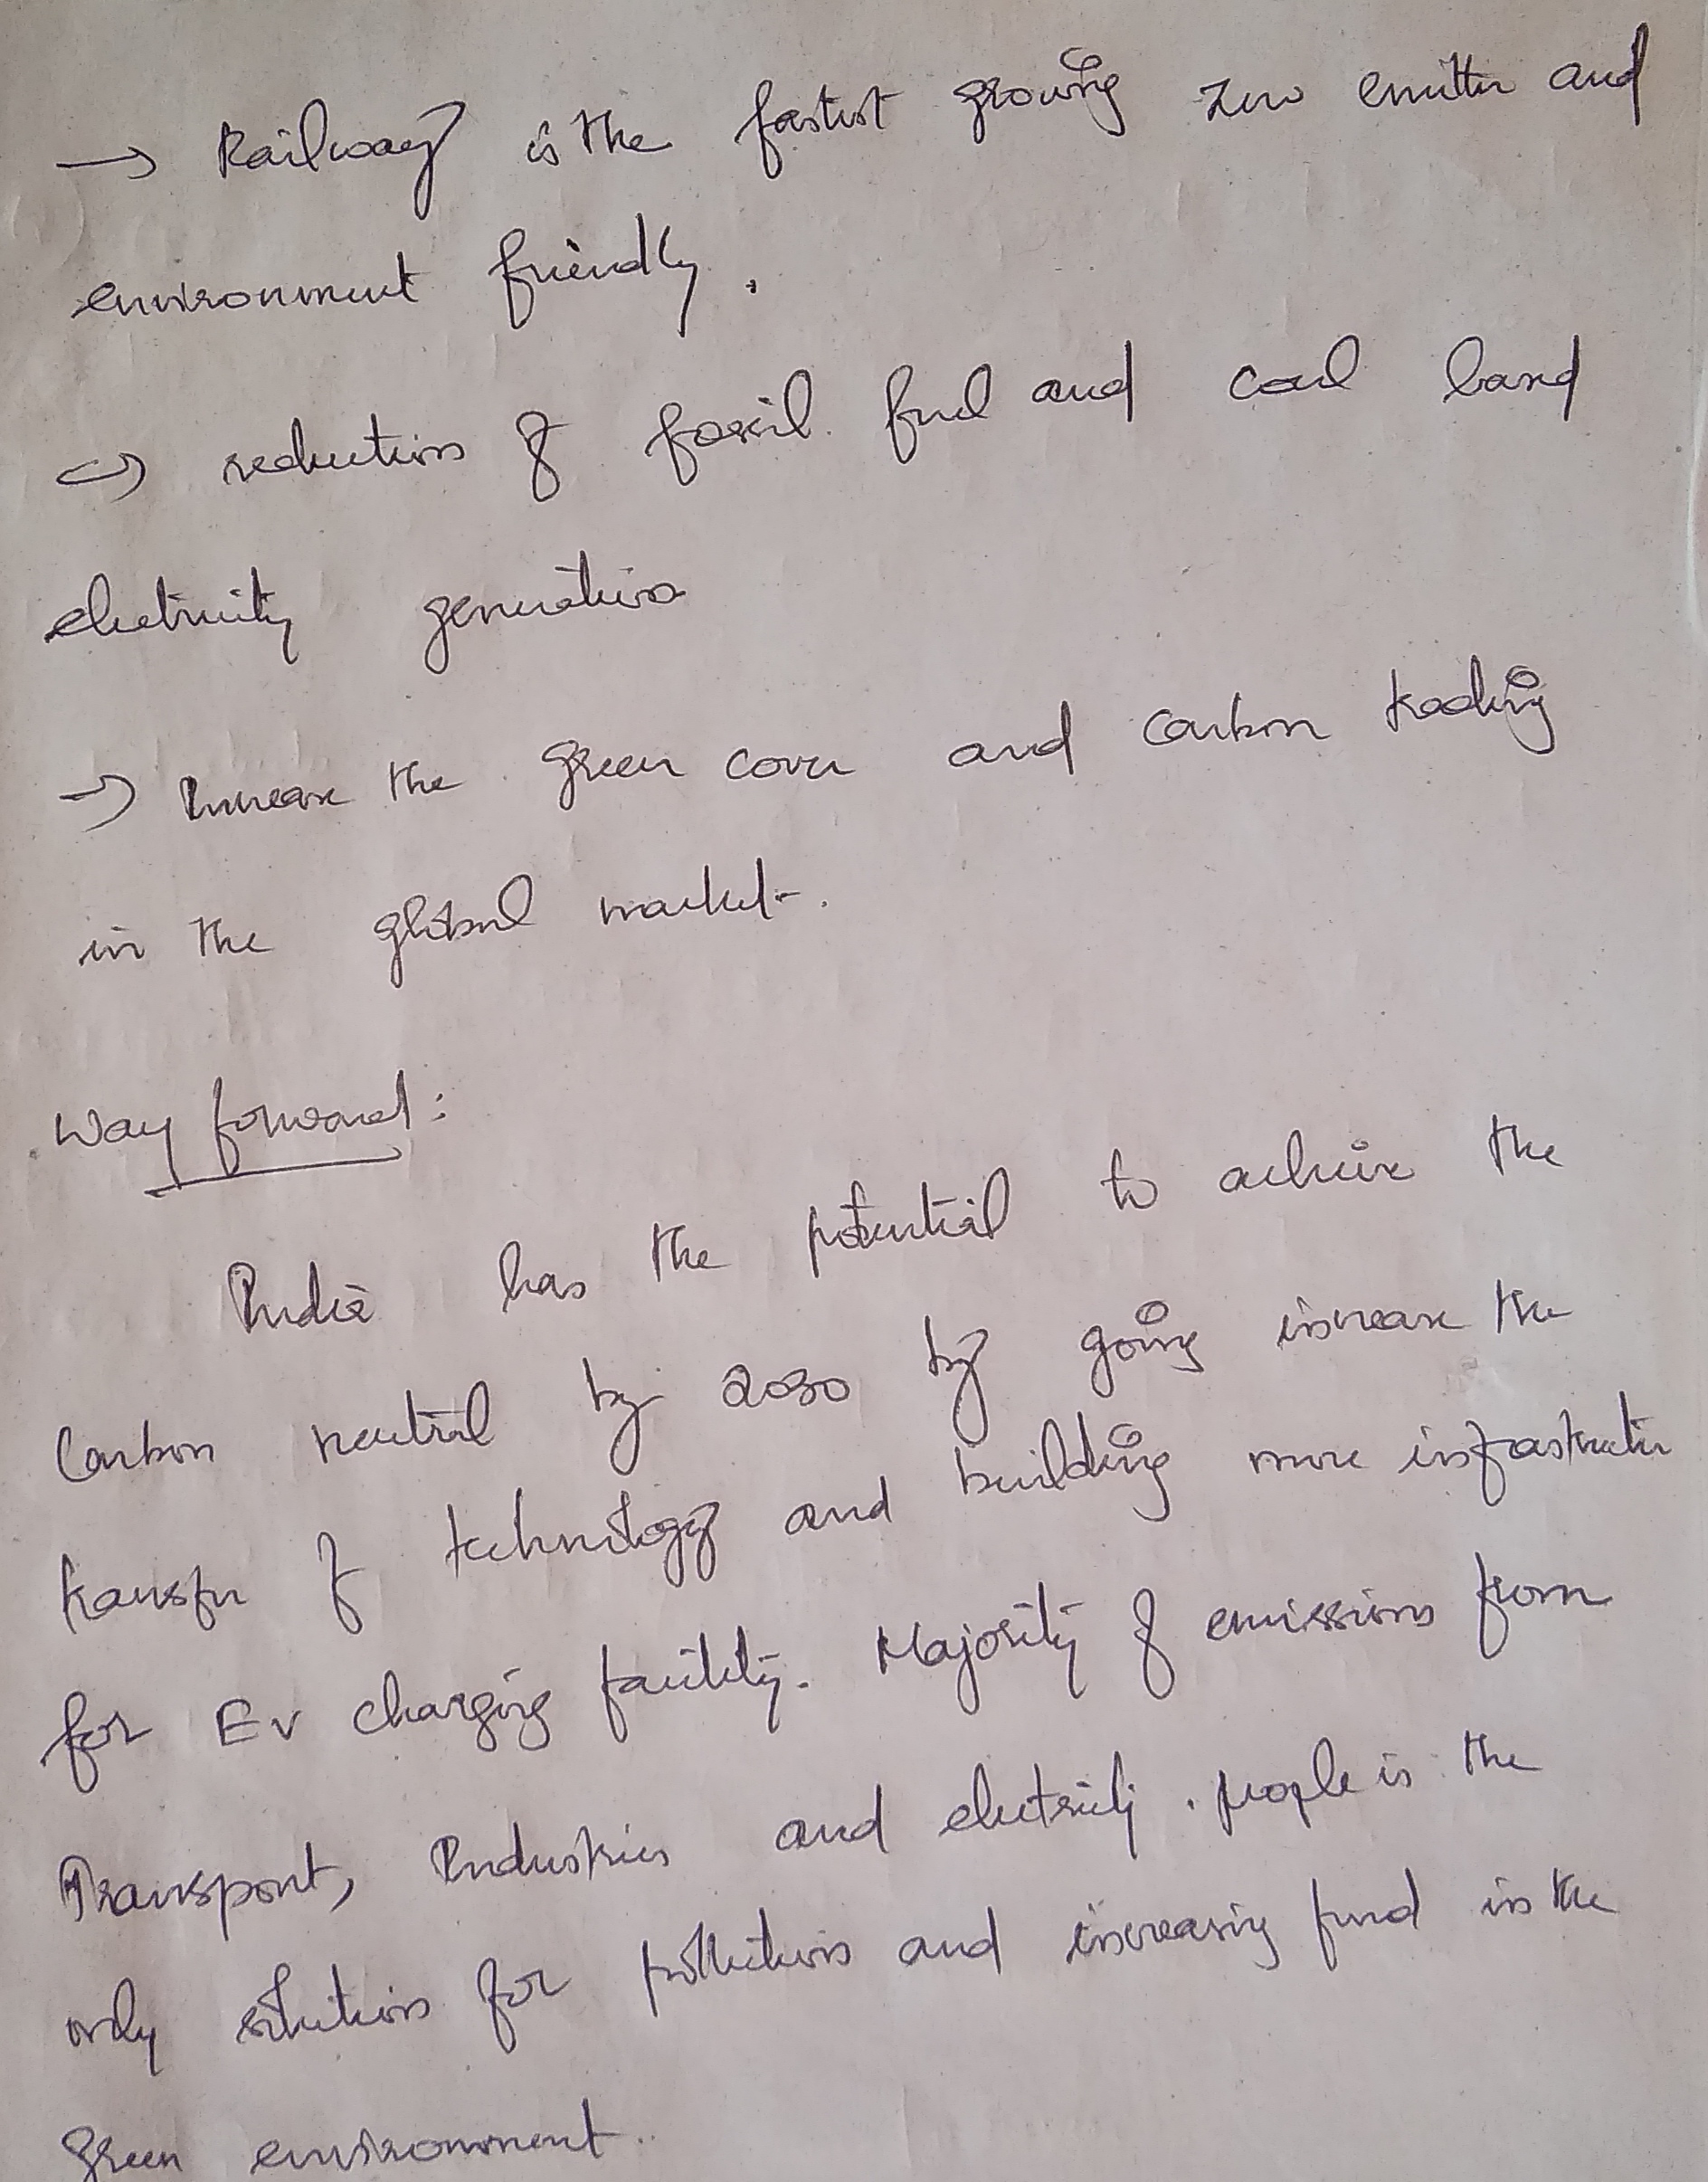 → Railway is the fastest growing zero emitter and
environment friendly.
→ reduction of fossil fuel and coal based
electricity generation
→ Increase the green cover and carbon trading
in the global market.
Way forward:
India has the potential to achieve the
Carbon neutral by 2030 by going increase the
transfer of technology and building more infrastructure
for EV charging facility. Majority of emissions from
Transport, Industries and electricity. people is the
only solution for pollution and increasing fund in the
green environment.